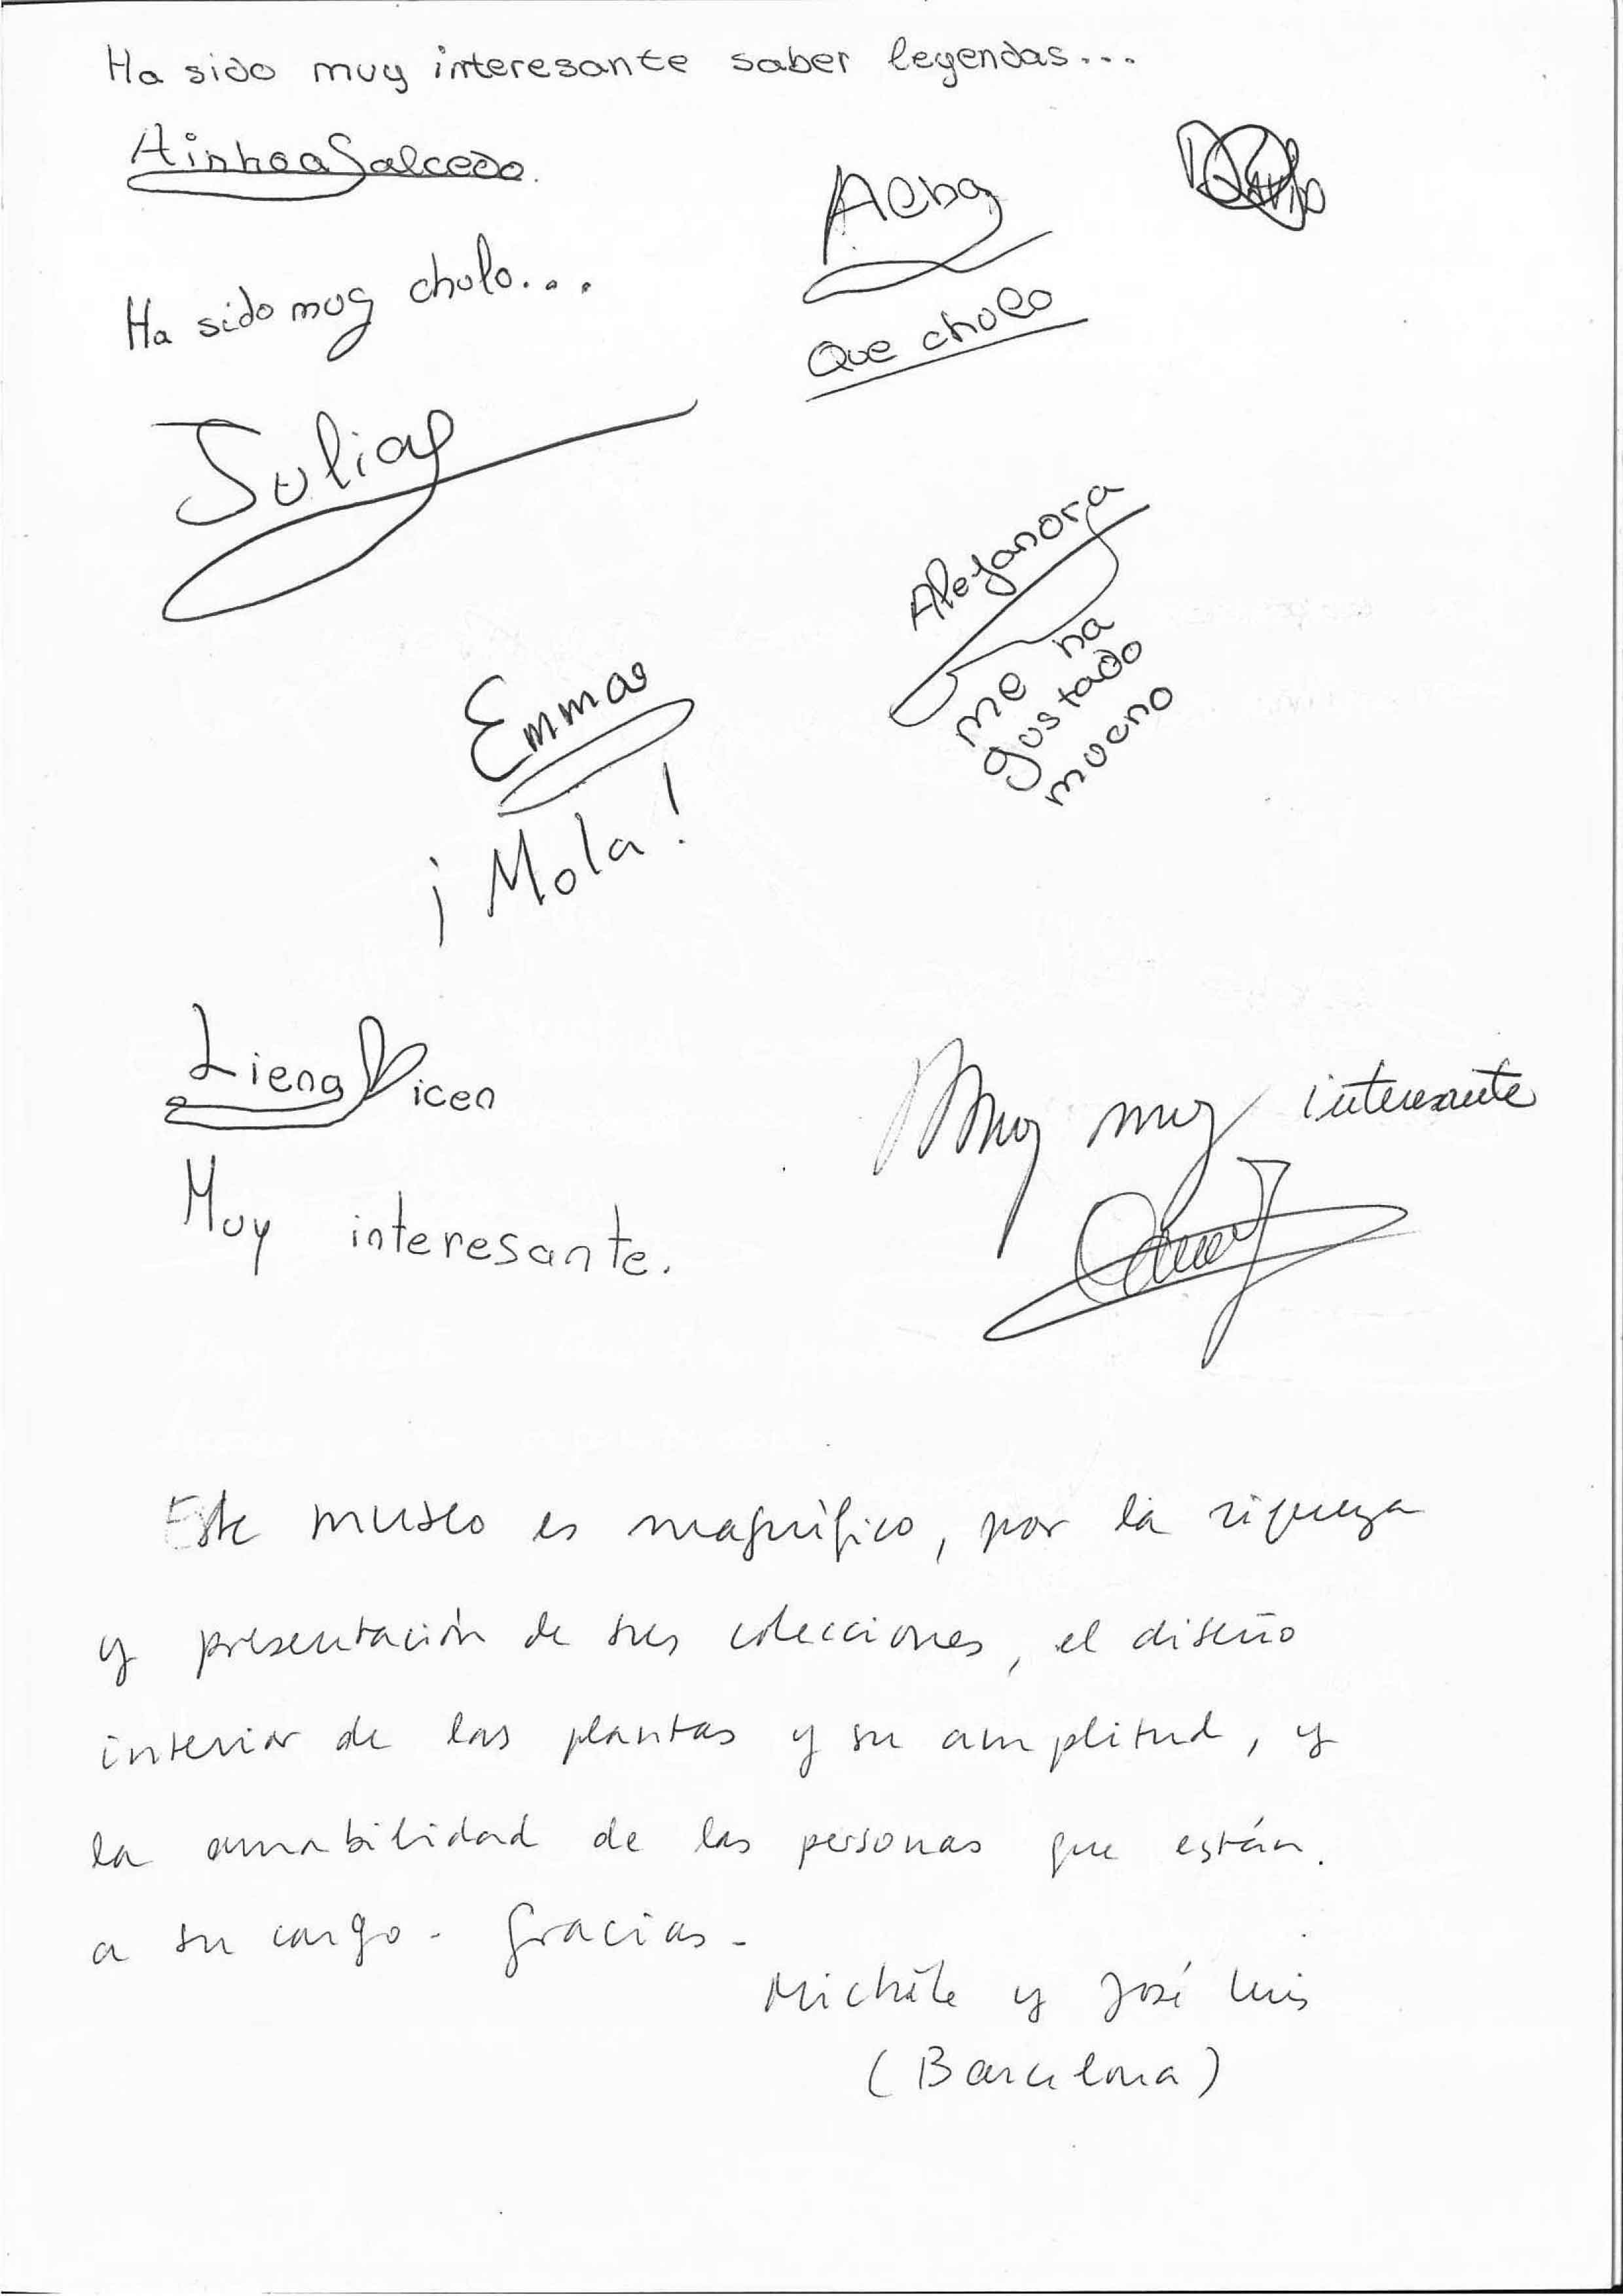 Ha sido muy interesante saber leyendas...
Ainhoa Salcedo.
Alba
Que chulo
Ha sido muy chulo....
Julia
Alejandra
me ha
gustado
mucho
Emma
¡Mola!
Liena Vicen
Muy interesante.
Muy muy interesante
Este museo es magnífico, por la riqueza
y presentación de sus colecciones, el diseño
interior de las plantas y su amplitud, y
la amabilidad de las personas que están.
a su cargo. Gracias.
Michèle y José Luis
(Barcelona)